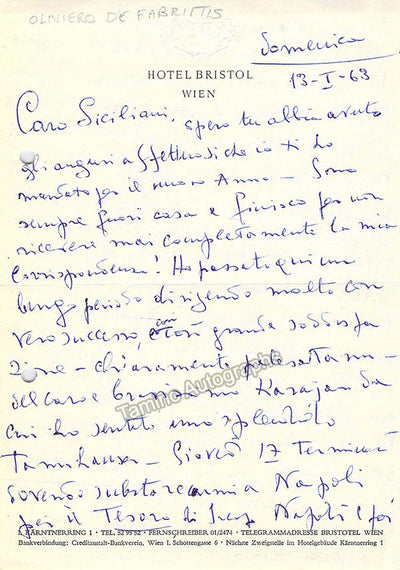 OLIVIERO DE FABRITIIS
HOTEL BRISTOL
WIEN
Domenica
13-I-63
Caro Siciliani, spero tu abbia avuto
gli auguri affettuosi che io ti ho
mandato per il nuovo Anno - Sono
sempre fuori casa e finisco per non
ricevere mai completamente la mia
corrispondenza! Ho passato qui un
lungo periodo dirigendo molto con
vero successo, e con grande soddisfa
zione - chiaramente palesatami -
del caro e bravissimo Karajan da
cui ho sentito uno splendido
Tannhauser - Giovedì 17 Termino
dovendo subito recarmi a Napoli
per il Tesoro di Napoli e poi
KÄRNTNERRING 1 • TEL. 52 95 52 • FERNSCHREIBER 01/2474 • TELEGRAMMADRESSE BRISTOTEL WIEN
Bankverbindung: Creditanstalt-Bankverein, Wien I, Schottengasse 6 • Nächste Zweigstelle im Hotelgebäude Kärntnerring 1
Tamino Autographs